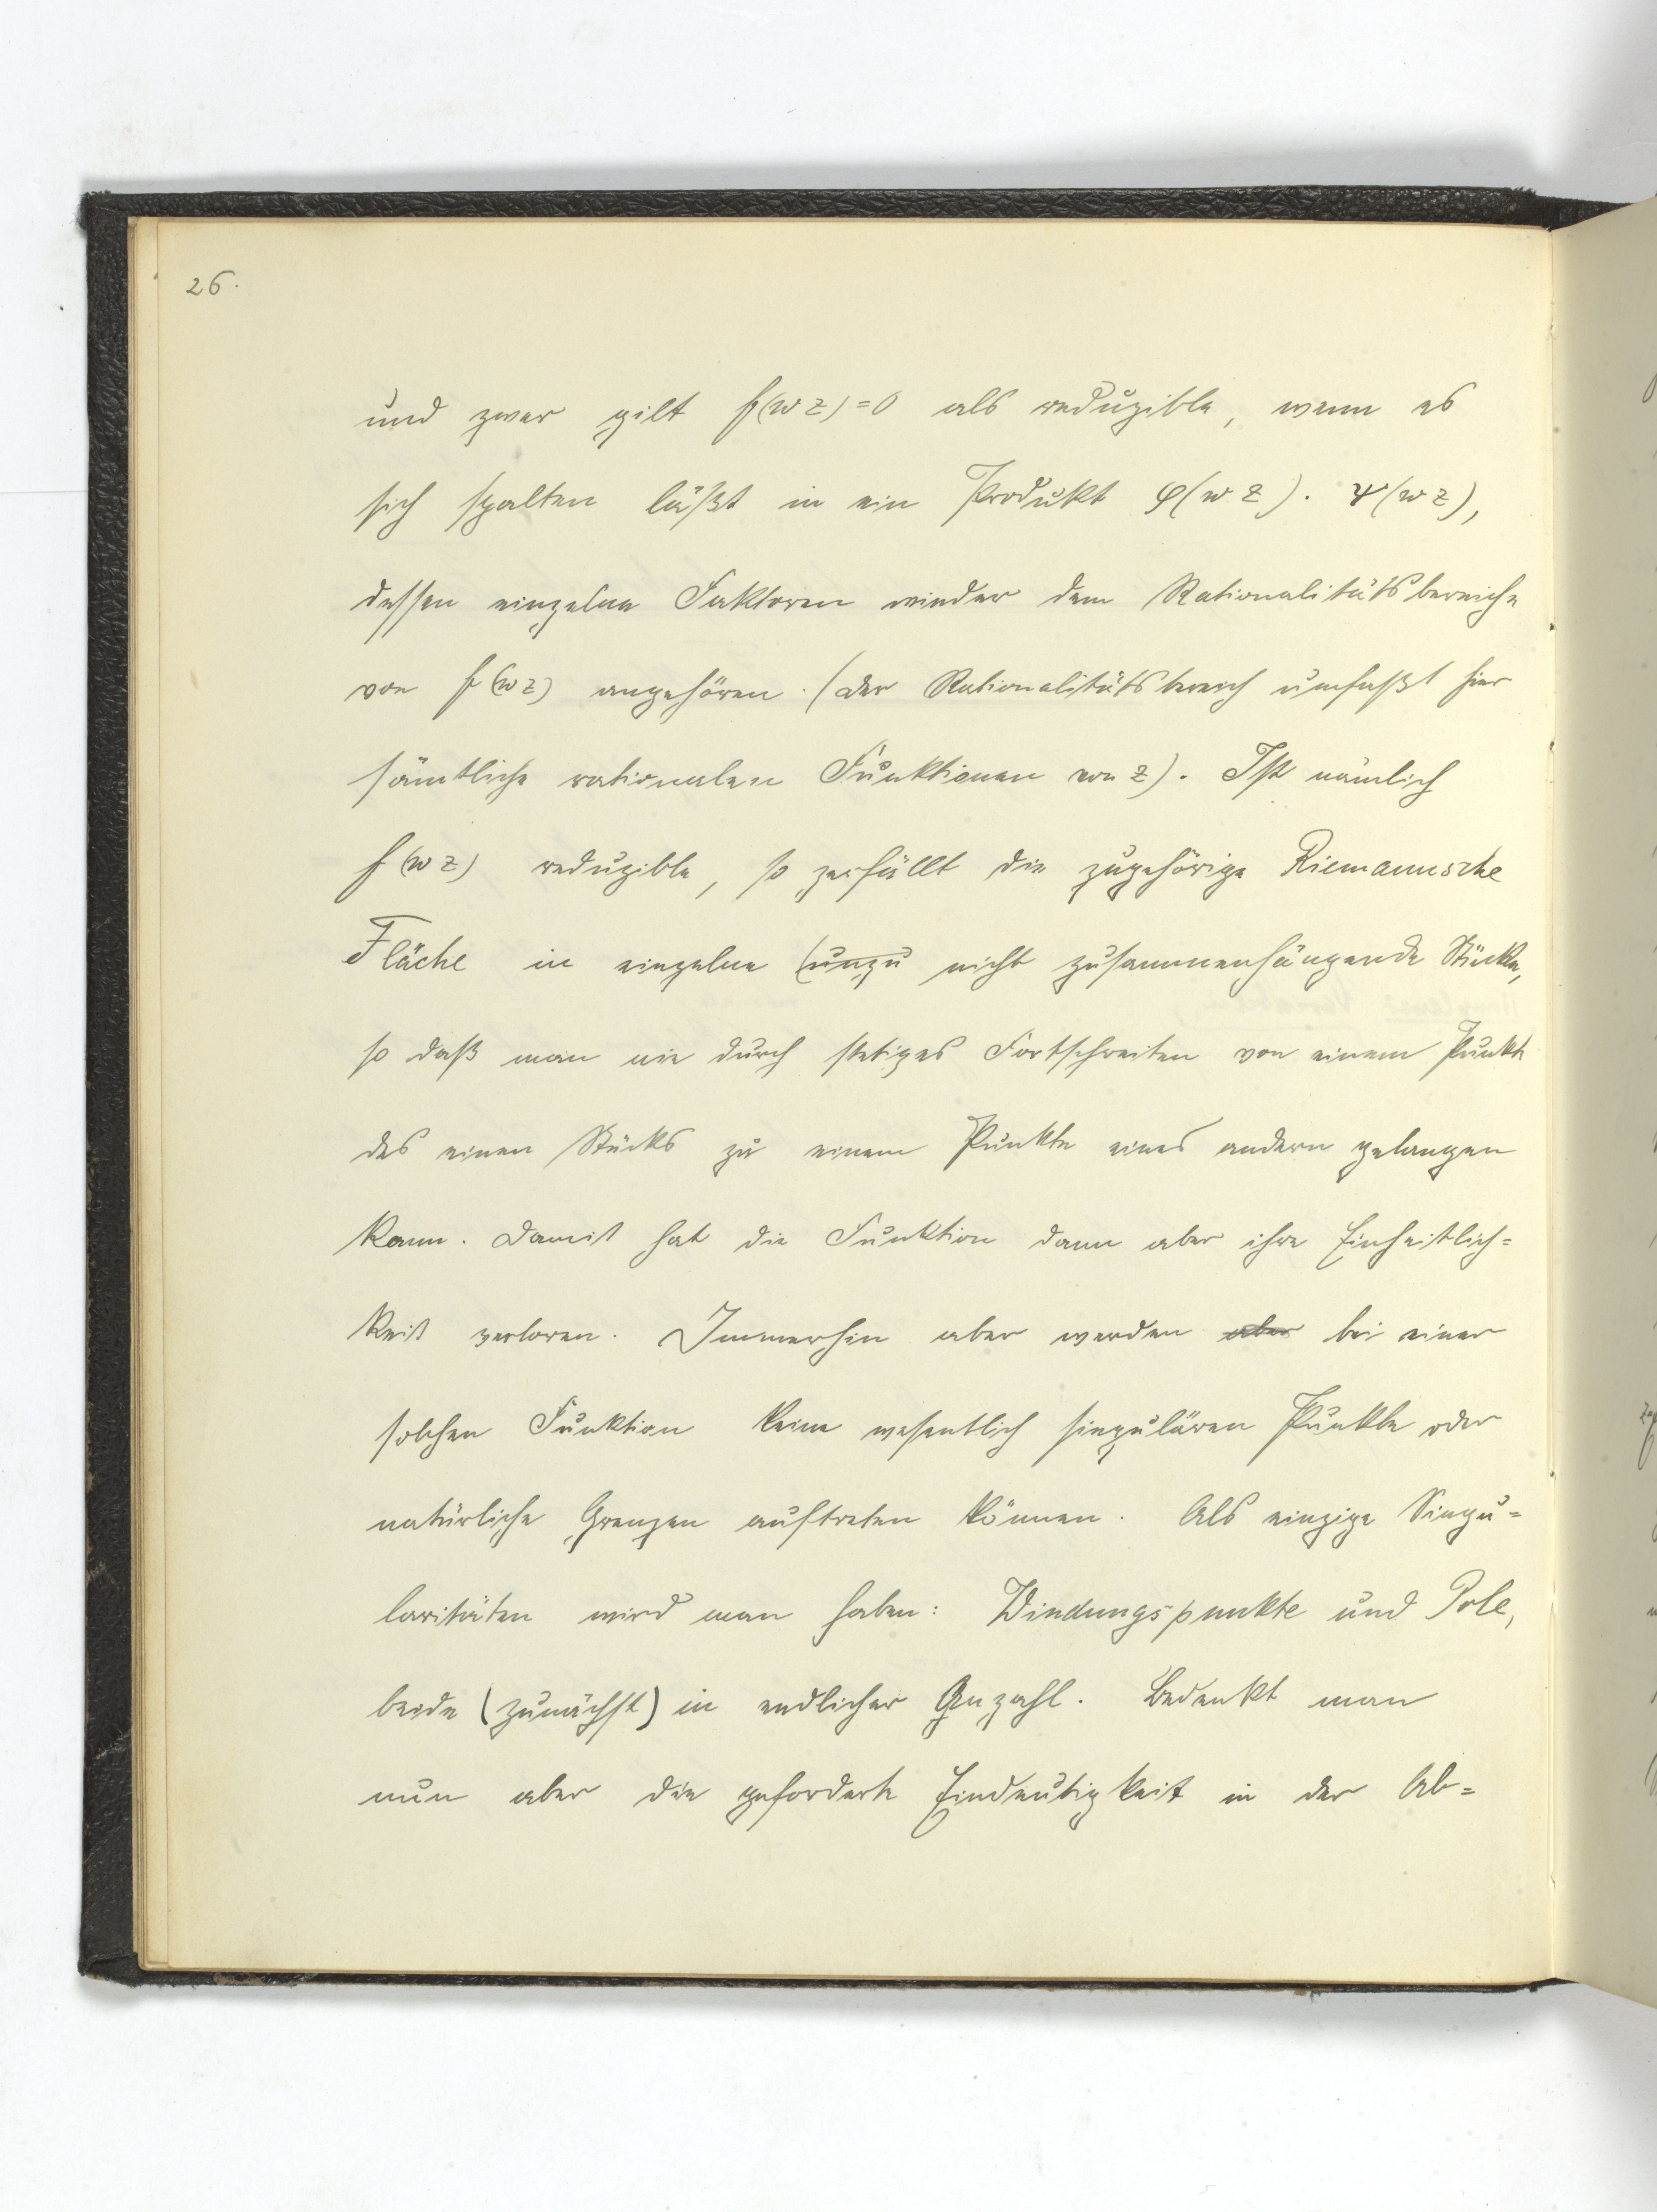 26.
und zwar gilt f(w z) = 0 als reduzible, wenn es
sich spalten läßt in ein Produkt φ(w z) . ψ(w z),
dessen einzelne Faktoren wieder dem Rationalitätsbereiche
von f(w z) angehören . (Der Rationalitätsbereich umfaßt hier
sämtliche rationalen Funktionen von z) . Ist nämlich
f(w z) reduzible, so zerfällt die zugehörige Riemannsche
Fläche in einzelne (unzu nicht zusammenhängende Stücke,
so daß man nie durch stetiges Fortschreiten von einem Punkte
des einen Stücks zu einem Punkte eines andern gelangen
kann. Damit hat die Funktion dann aber ihre Einheitlich=
keit verloren. Immerhin aber werden aber bei einer
solchen Funktion keine wesentlich singulären Punkte oder
natürliche Grenzen auftreten können. Als einzige Singu=
laritäten wird man haben: Windungspunkte und Pole,
beide (zunächst) in endlicher Anzahl. Bedenkt man
nun aber die geforderte Eindeutigkeit in der Ab=